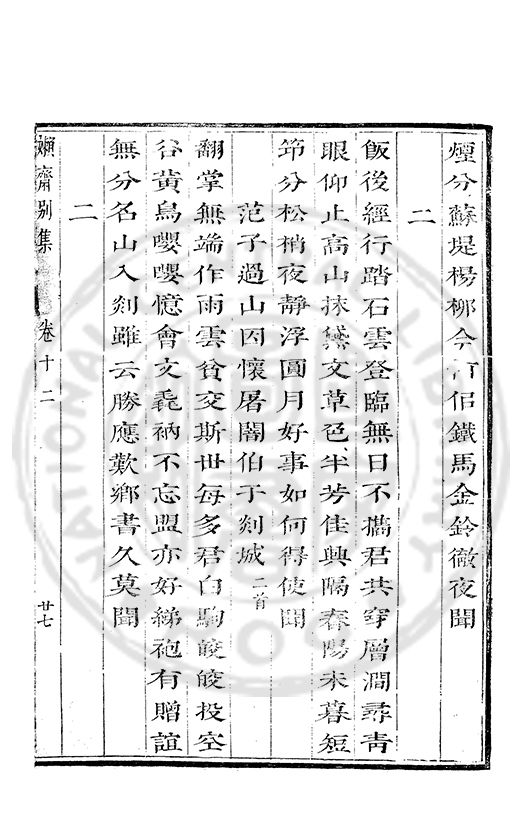 煙分蘇堤楊柳侶鐵馬金鈴徹夜聞
二
飯後經行踏石雲登臨無日不攜君共穿層澗尋青
眼仰止高山抹黛文草色半芳佳興隔春陽未暮短
筇分松梢夜靜浮圓月好事如何得使聞
范子過山因懷屠闇伯于剡城 二首
翻掌無端作雨雲貧交斯世每多君白駒皎皎投空
谷黃鳥嚶嚶憶會文毳衲不忘盟亦好綈袍有贈誼
無分名山入剡雖云勝應歎鄉書久莫聞
二
嬾齋別集 卷十二 廿七